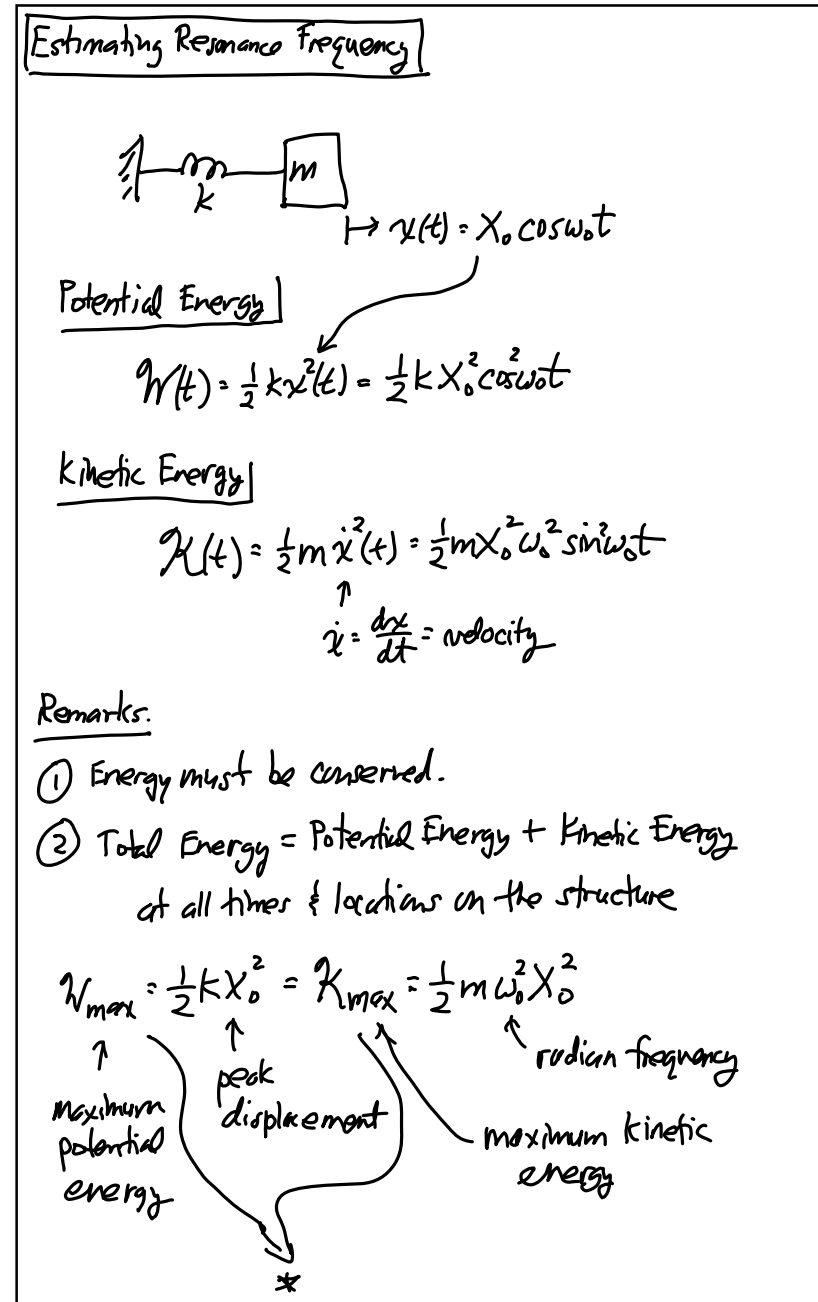 Estimating Resonance Frequency
m
k
↦ x(t) = X₀ cosω₀t
Potential Energy
W(t) = ½ kx²(t) = ½ k X₀² cos²ω₀t
Kinetic Energy
K(t) = ½ m ẋ²(t) = ½ m X₀² ω₀² sin²ω₀t
↑
ẋ = dx/dt = velocity
Remarks.
① Energy must be conserved.
② Total Energy = Potential Energy + Kinetic Energy
at all times & locations on the structure
W_max = ½ k X₀² = K_max = ½ m ω₀² X₀²
radian frequency
peak
displacement
maximum
potential
energy
maximum kinetic
energy
*